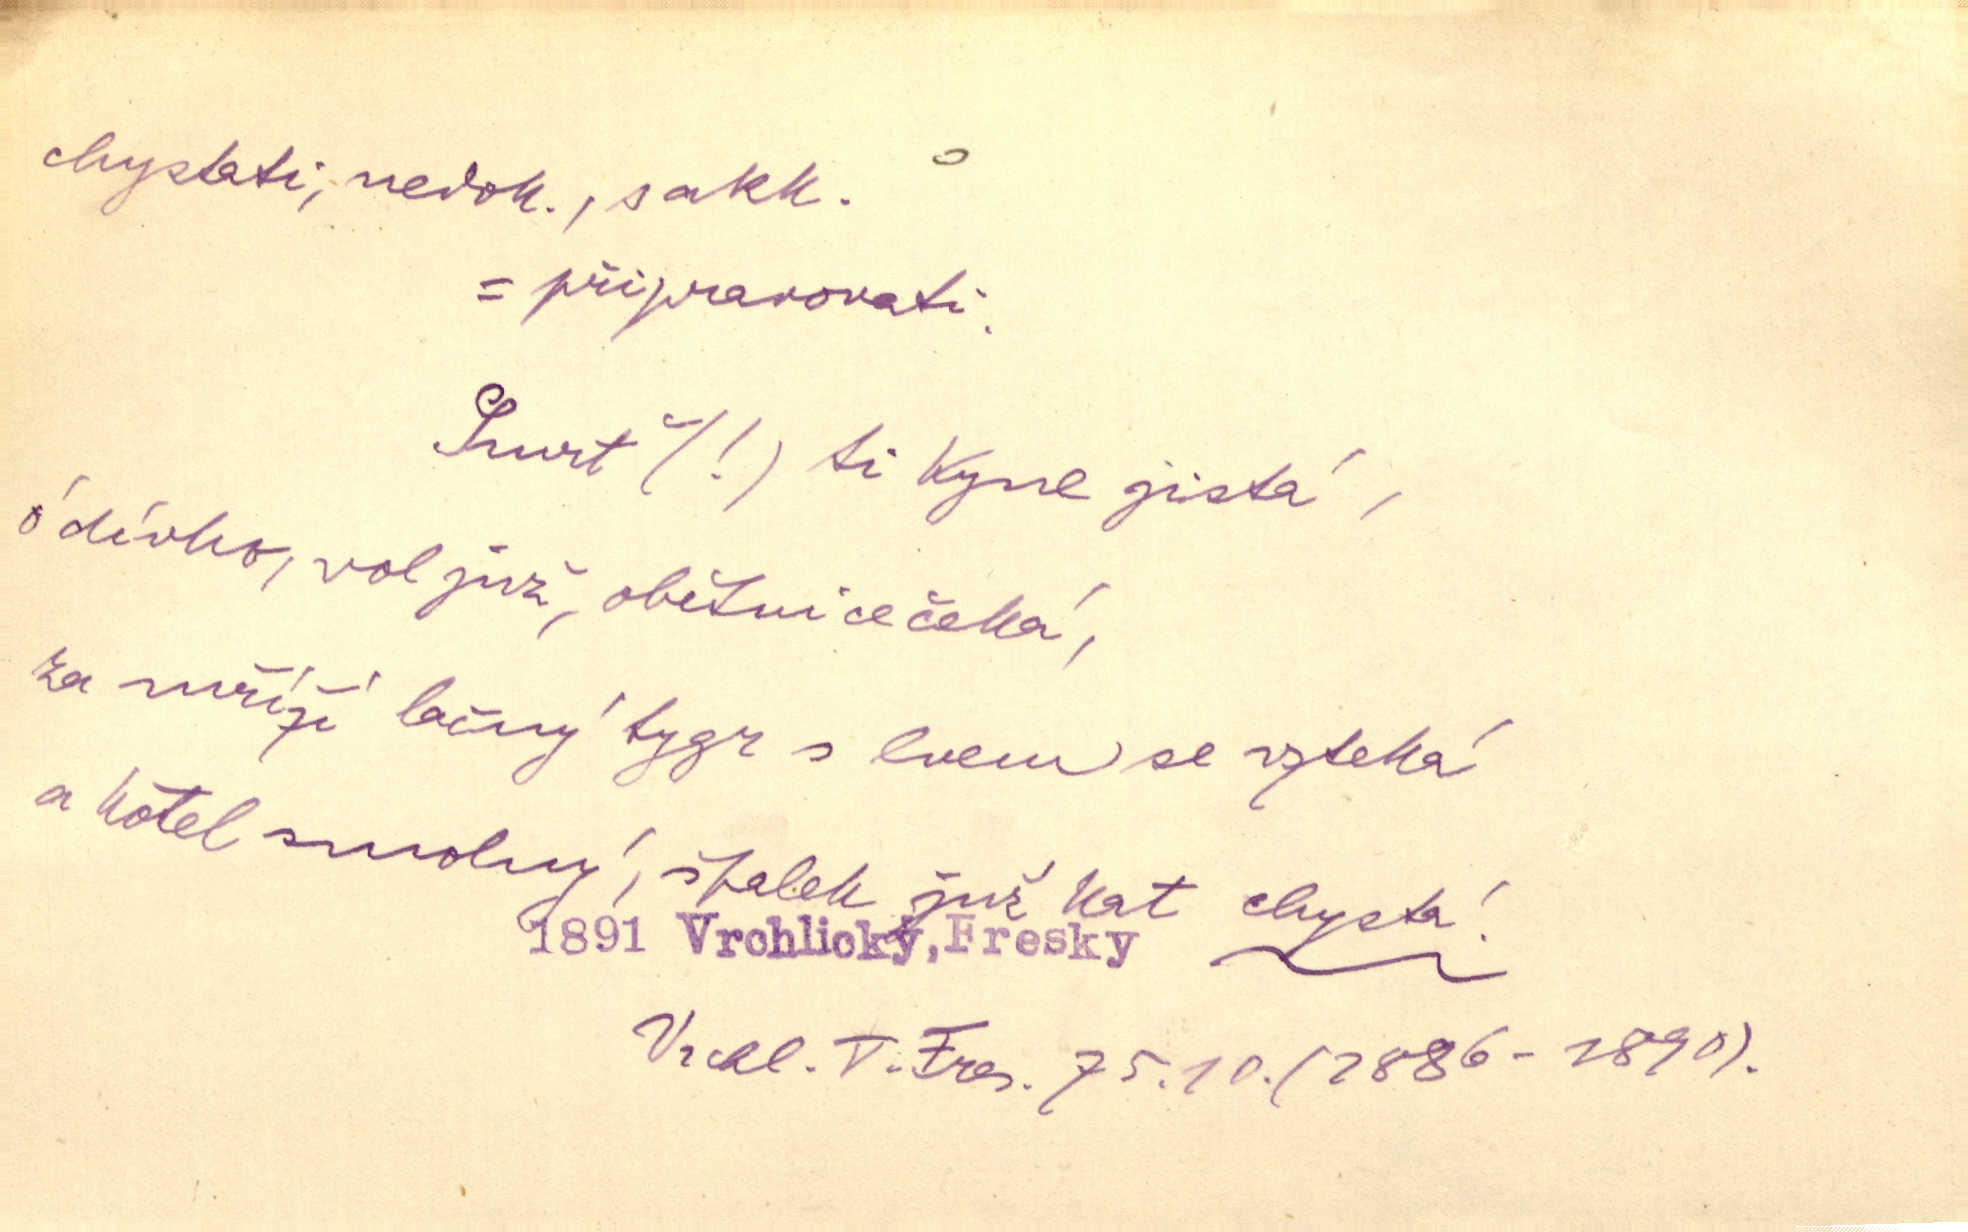 chystati, nedok., s akk.
= připravovati.
Smrt (!) ti kyne jistá,
ó dívko, vol již, obětnice čeká,
za mříží lačný tygr s lvem se vzteká
a kotel smolný, špalek již kat chystá!
1891 Vrchlický, Fresky
Vrchl. T. Fres. 75.10. (1886-1890).